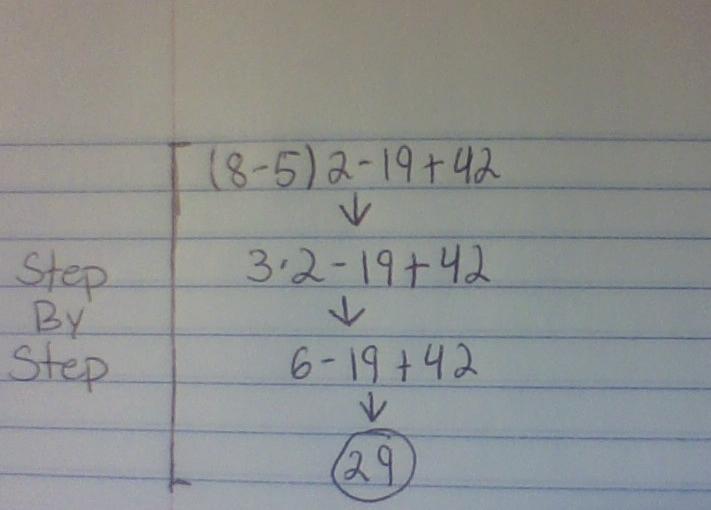 (8-5)2-19+42
↓
3·2-19+42
↓
6-19+42
↓
29
Step
By
Step